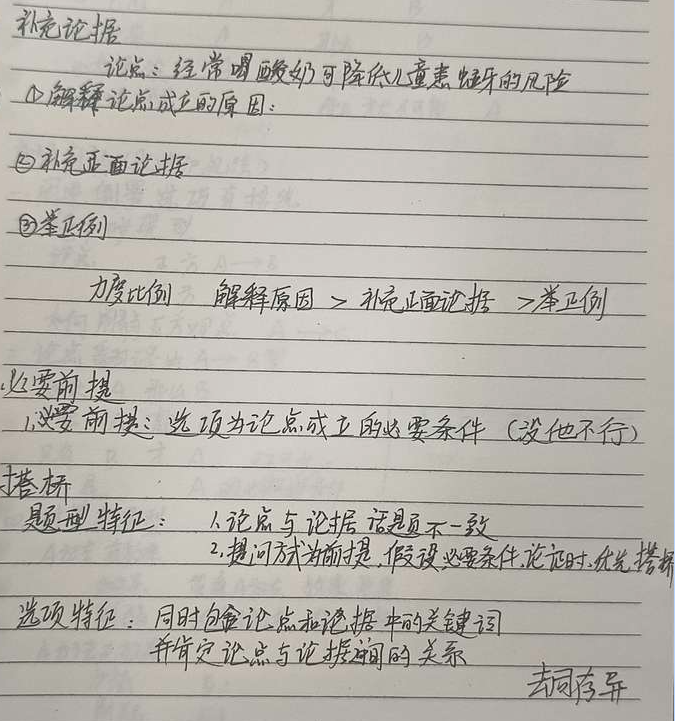 补充论据
论点：经常喝酸奶可降低儿童患蛀牙的风险
①解释论点成立的原因：
②补充正面论据
③举正例
力度比例 解释原因 > 补充正面论据 > 举正例
必要前提
1.必要前提：选项为论点成立的必要条件（没他不行）
搭桥
题型特征： 1.论点与论据话题不一致
2.提问方式为前提、假设、必要条件、论证时，优先搭桥
选项特征：同时包含论点和论据中的关键词
并肯定论点与论据之间的关系
去同存异